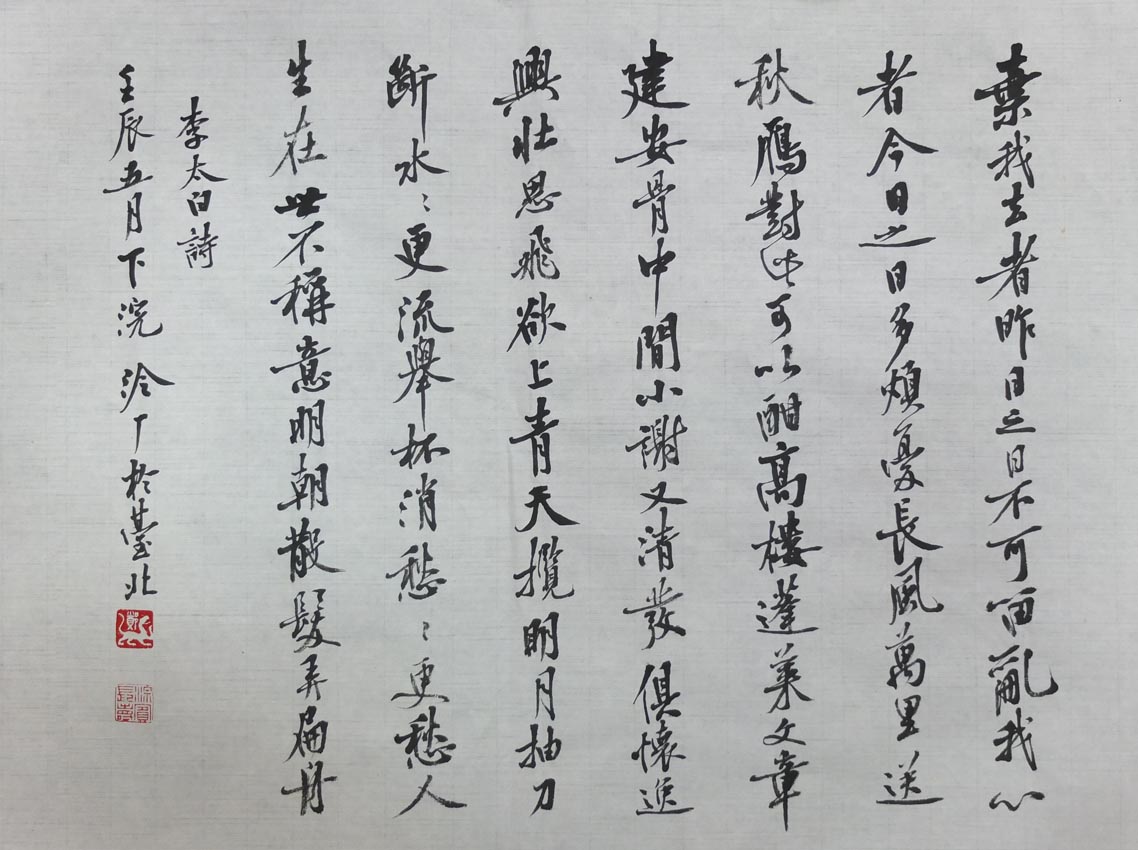 棄我去者昨日之日不可留亂我心
者今日之日多煩憂長風萬里送
秋鴈對此可以酣高樓蓬萊文章
建安骨中間小謝又清發俱懷逸
興壯思飛欲上青天攬明月抽刀
斷水〻更流舉杯消愁〻更愁人
生在世不稱意明朝散髮弄扁舟
李太白詩
壬辰五月下浣 泠丁於臺北